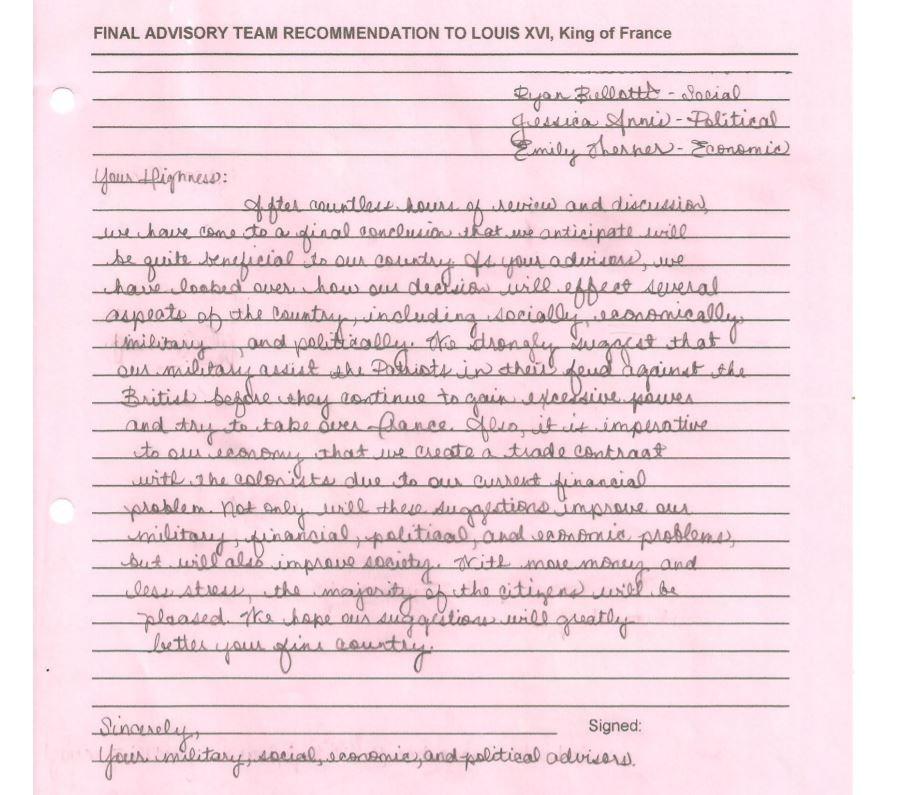 FINAL ADVISORY TEAM RECOMMENDATION TO LOUIS XVI, King of France
Ryan - Social
Jessica Annis - Political
Emily - Economic
Your Highness:
After countless hours of review and discussion,
we have come to a final conclusion that we anticipate will
be quite beneficial to our country. As your advisors, we
have looked over how our decision will effect several
aspects of the country, including socially, economically,
military , and politically. We strongly suggest that
our military assist the Patriots in their feud against the
British before they continue to gain excessive power
and try to take over france. Also, it is imperative
to our economy that we create a trade contract
with the colonists due to our current financial
problem. Not only will these suggestions improve our
military, financial, political, and economic problems,
but will also improve society. With more money and
less stress, the majority of the citizens will be
pleased. We hope our suggestions will greatly
better your fine country.
Sincerely, Signed:
Your military, social, economic, and political advisors.